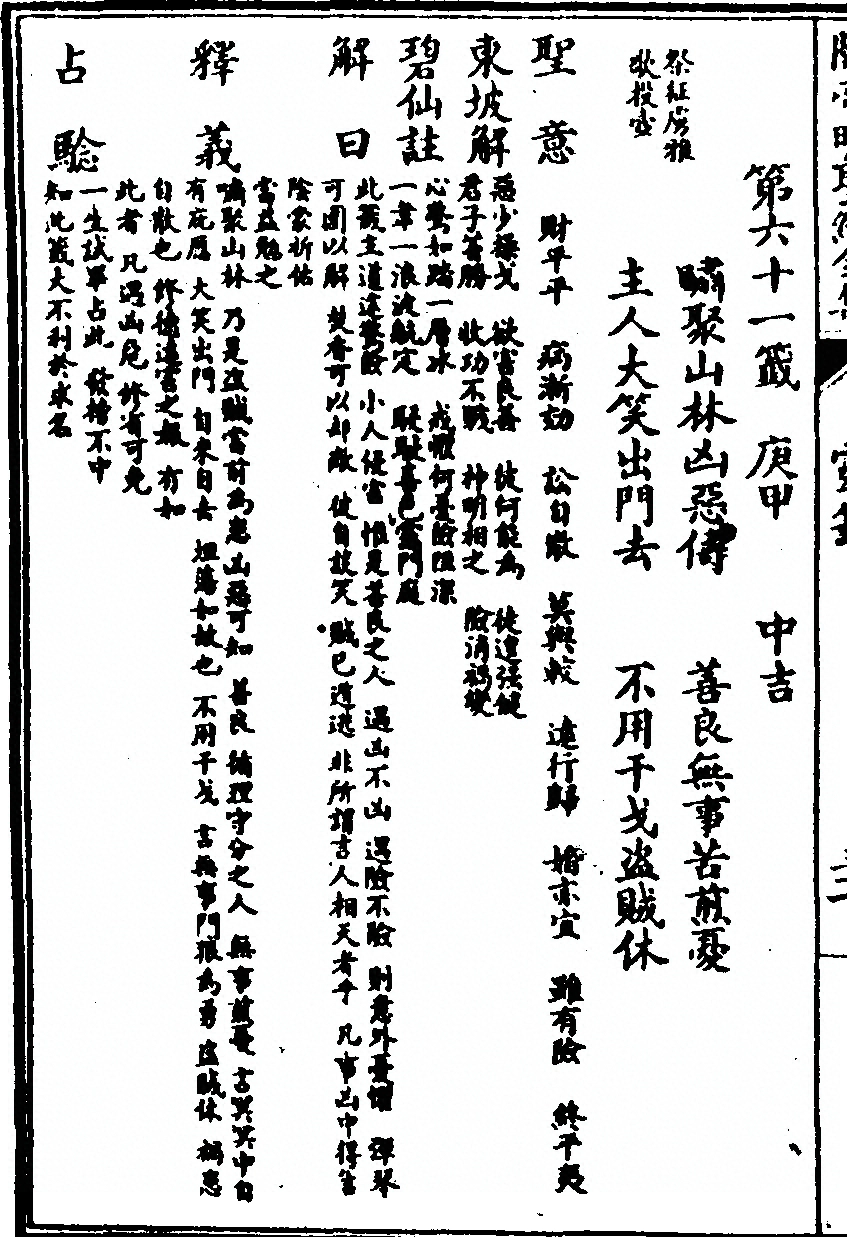 第六十一籤 庚甲 中吉
嘯聚山林凶惡儔 善良無事苦煎憂
主人大笑出門去 不用干戈盜賊休
祭征虜雅
歌投壺
聖意 財平平 病漸効 訟自散 莫與較 遠行歸 婚亦宜 雖有險 終平夷
東坡解 惡少操戈 欲害良善 彼何能為 徒逞強健
君子善勝 收功不戰 神明相之 險消禍變
碧仙註 心驚如踏一層冰 戒懼何憂險阻深
一葦一浪波航定 駸駸喜色靄門庭
解曰 此籤主道途驚險 小人侵害 惟是善良之人 遇凶不凶 遇險不險 則意外憂懼 彈琴
可圍以解 焚香可以却敵 彼自談笑 賊已遁逃 非所謂吉人相天者乎 凡事凶中得吉
陰蒙祈佑
當益勉之
釋義 嘯聚山林 乃是盜賊當前為患 凶惡可知 善良 循理守分之人 無事煎憂 言冥冥中自
有庇應 大笑出門 自來自去 坦蕩如故也 不用干戈 言無事鬥狠為勇 盜賊休 禍患
自散也 修德遠害之報 有如
此者 凡遇凶危 修省可免
占驗 一生試單占此 發榜不中
知此籤大不利於求名